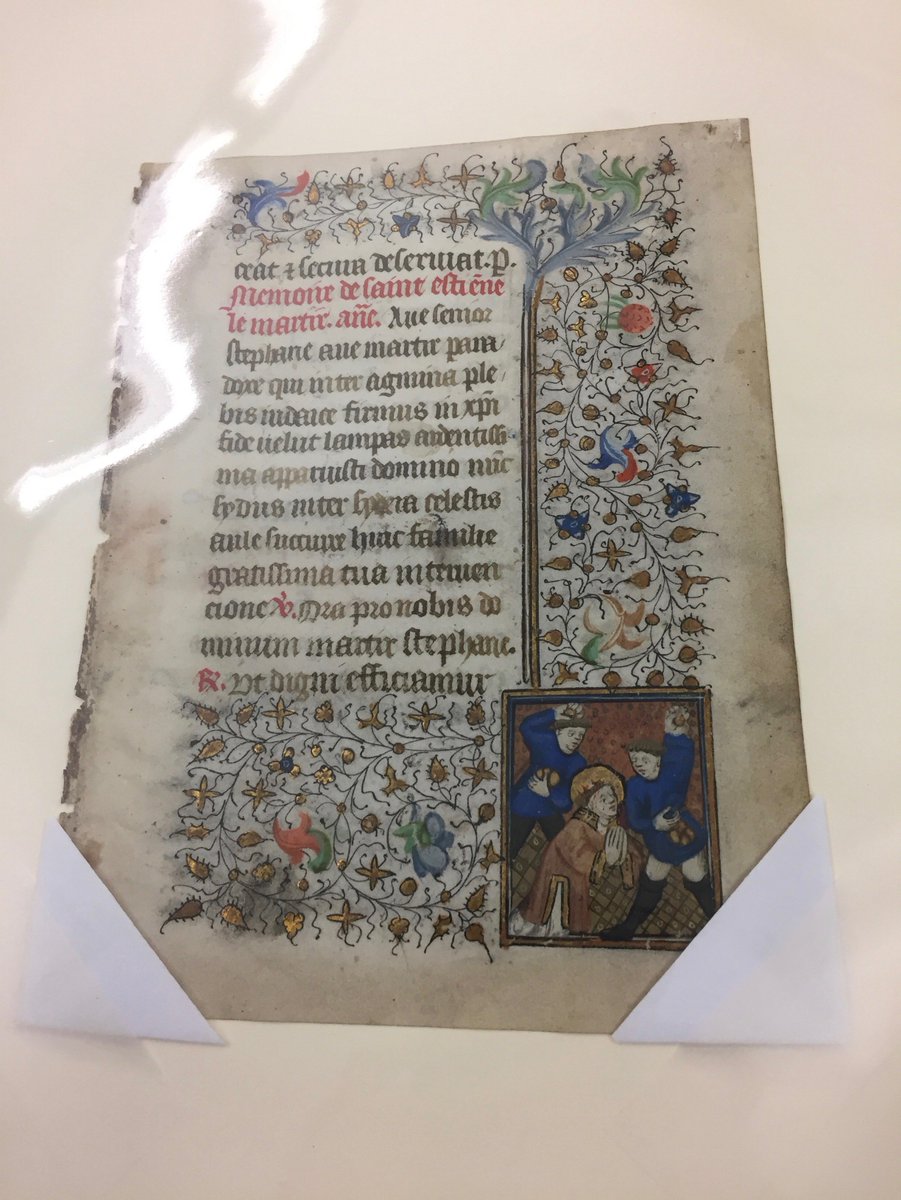 ceat ⁊ secura deseruiat. P.
Memoire de saint estiẽne
le martir. añe. Aue senior
stephane aue martir para/
doxe qui inter agmina ple/
bis iudaice firmus in xp̃i
fide uelut lampas ardentissi
ma apparuisti domino nũc
sydus inter sydera celestis
aule succurre huic familie
gratissima tua interuen
cione ℣. Ora pro nobis do
minum martir stephane.
℟. Vt digni efficiamur